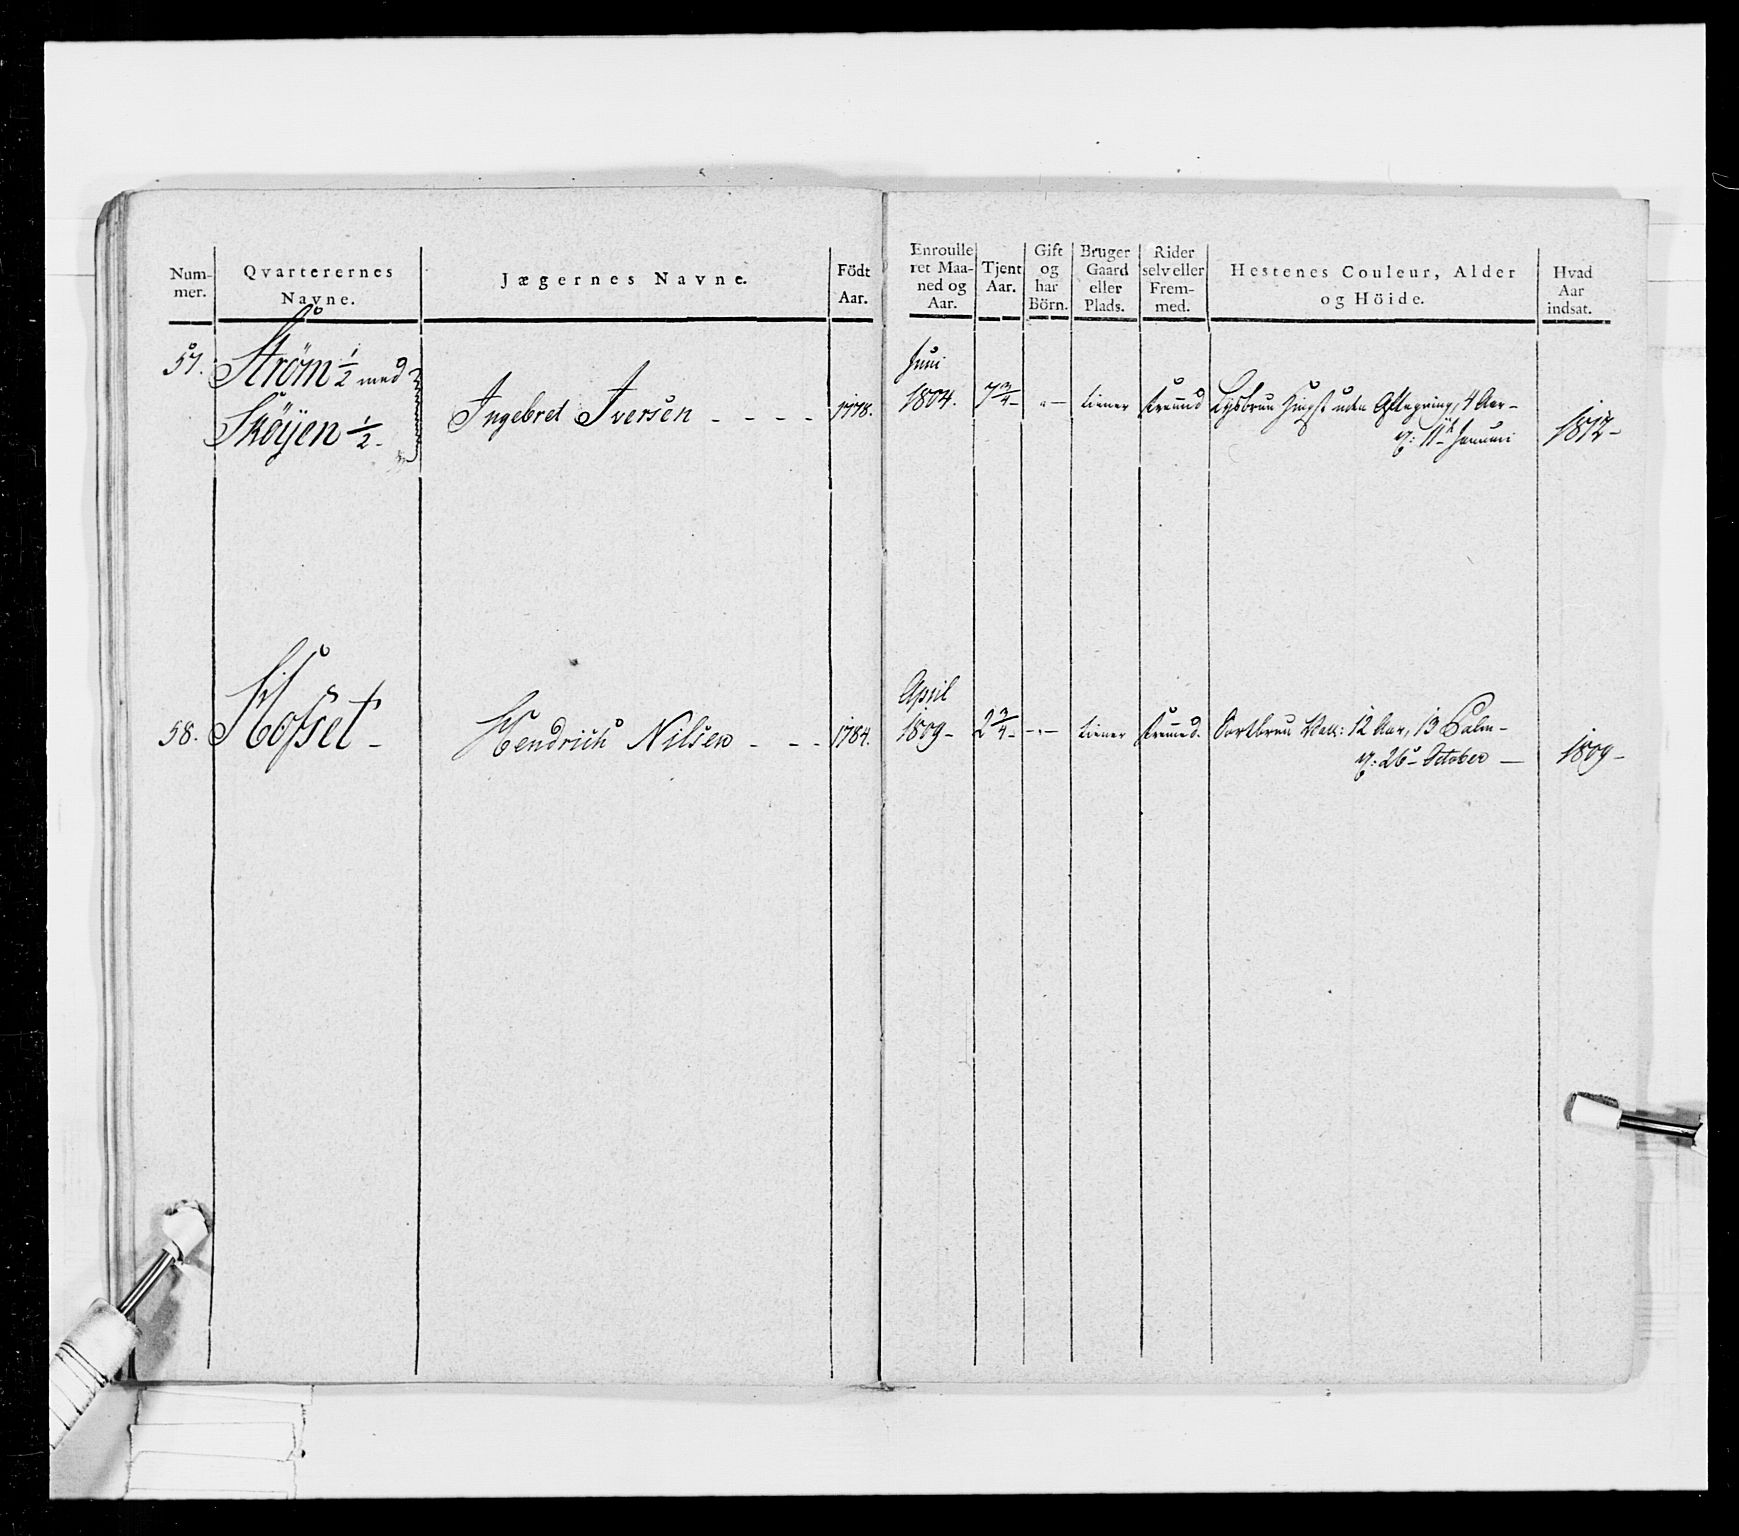 Num-
mer.
Qvarterernes
Navne.
Jægernes Navne.
Födt
Aar.
Enroulle
ret Maa-
ned og
Aar.
Tjent
Aar.
Gift
og
har
Börn.
Bruger
Gaard
eller
Plads.
Rider
selv eller
Frem-
med.
Hestenes Couleur, Alder
og Höide.
Hvad
Aar
indsat.
57. Strøm 1/2 med
Skøyen 1/2 -
Ingebret Iversen - - - - 1778.
Juni
1804. 7 3/4 - - tiener fremed Lysbrun Hingst uden Aftegning, 4 Aar -
11te Januari 1812 -
58. Hofset - Hendrich Nilsen - - - 1784.
April
1809 - 2 3/4 - - - tiener fremed. Sortbrun Vall: 12 Aar, 13 Palm -
26 - October - 1809 -